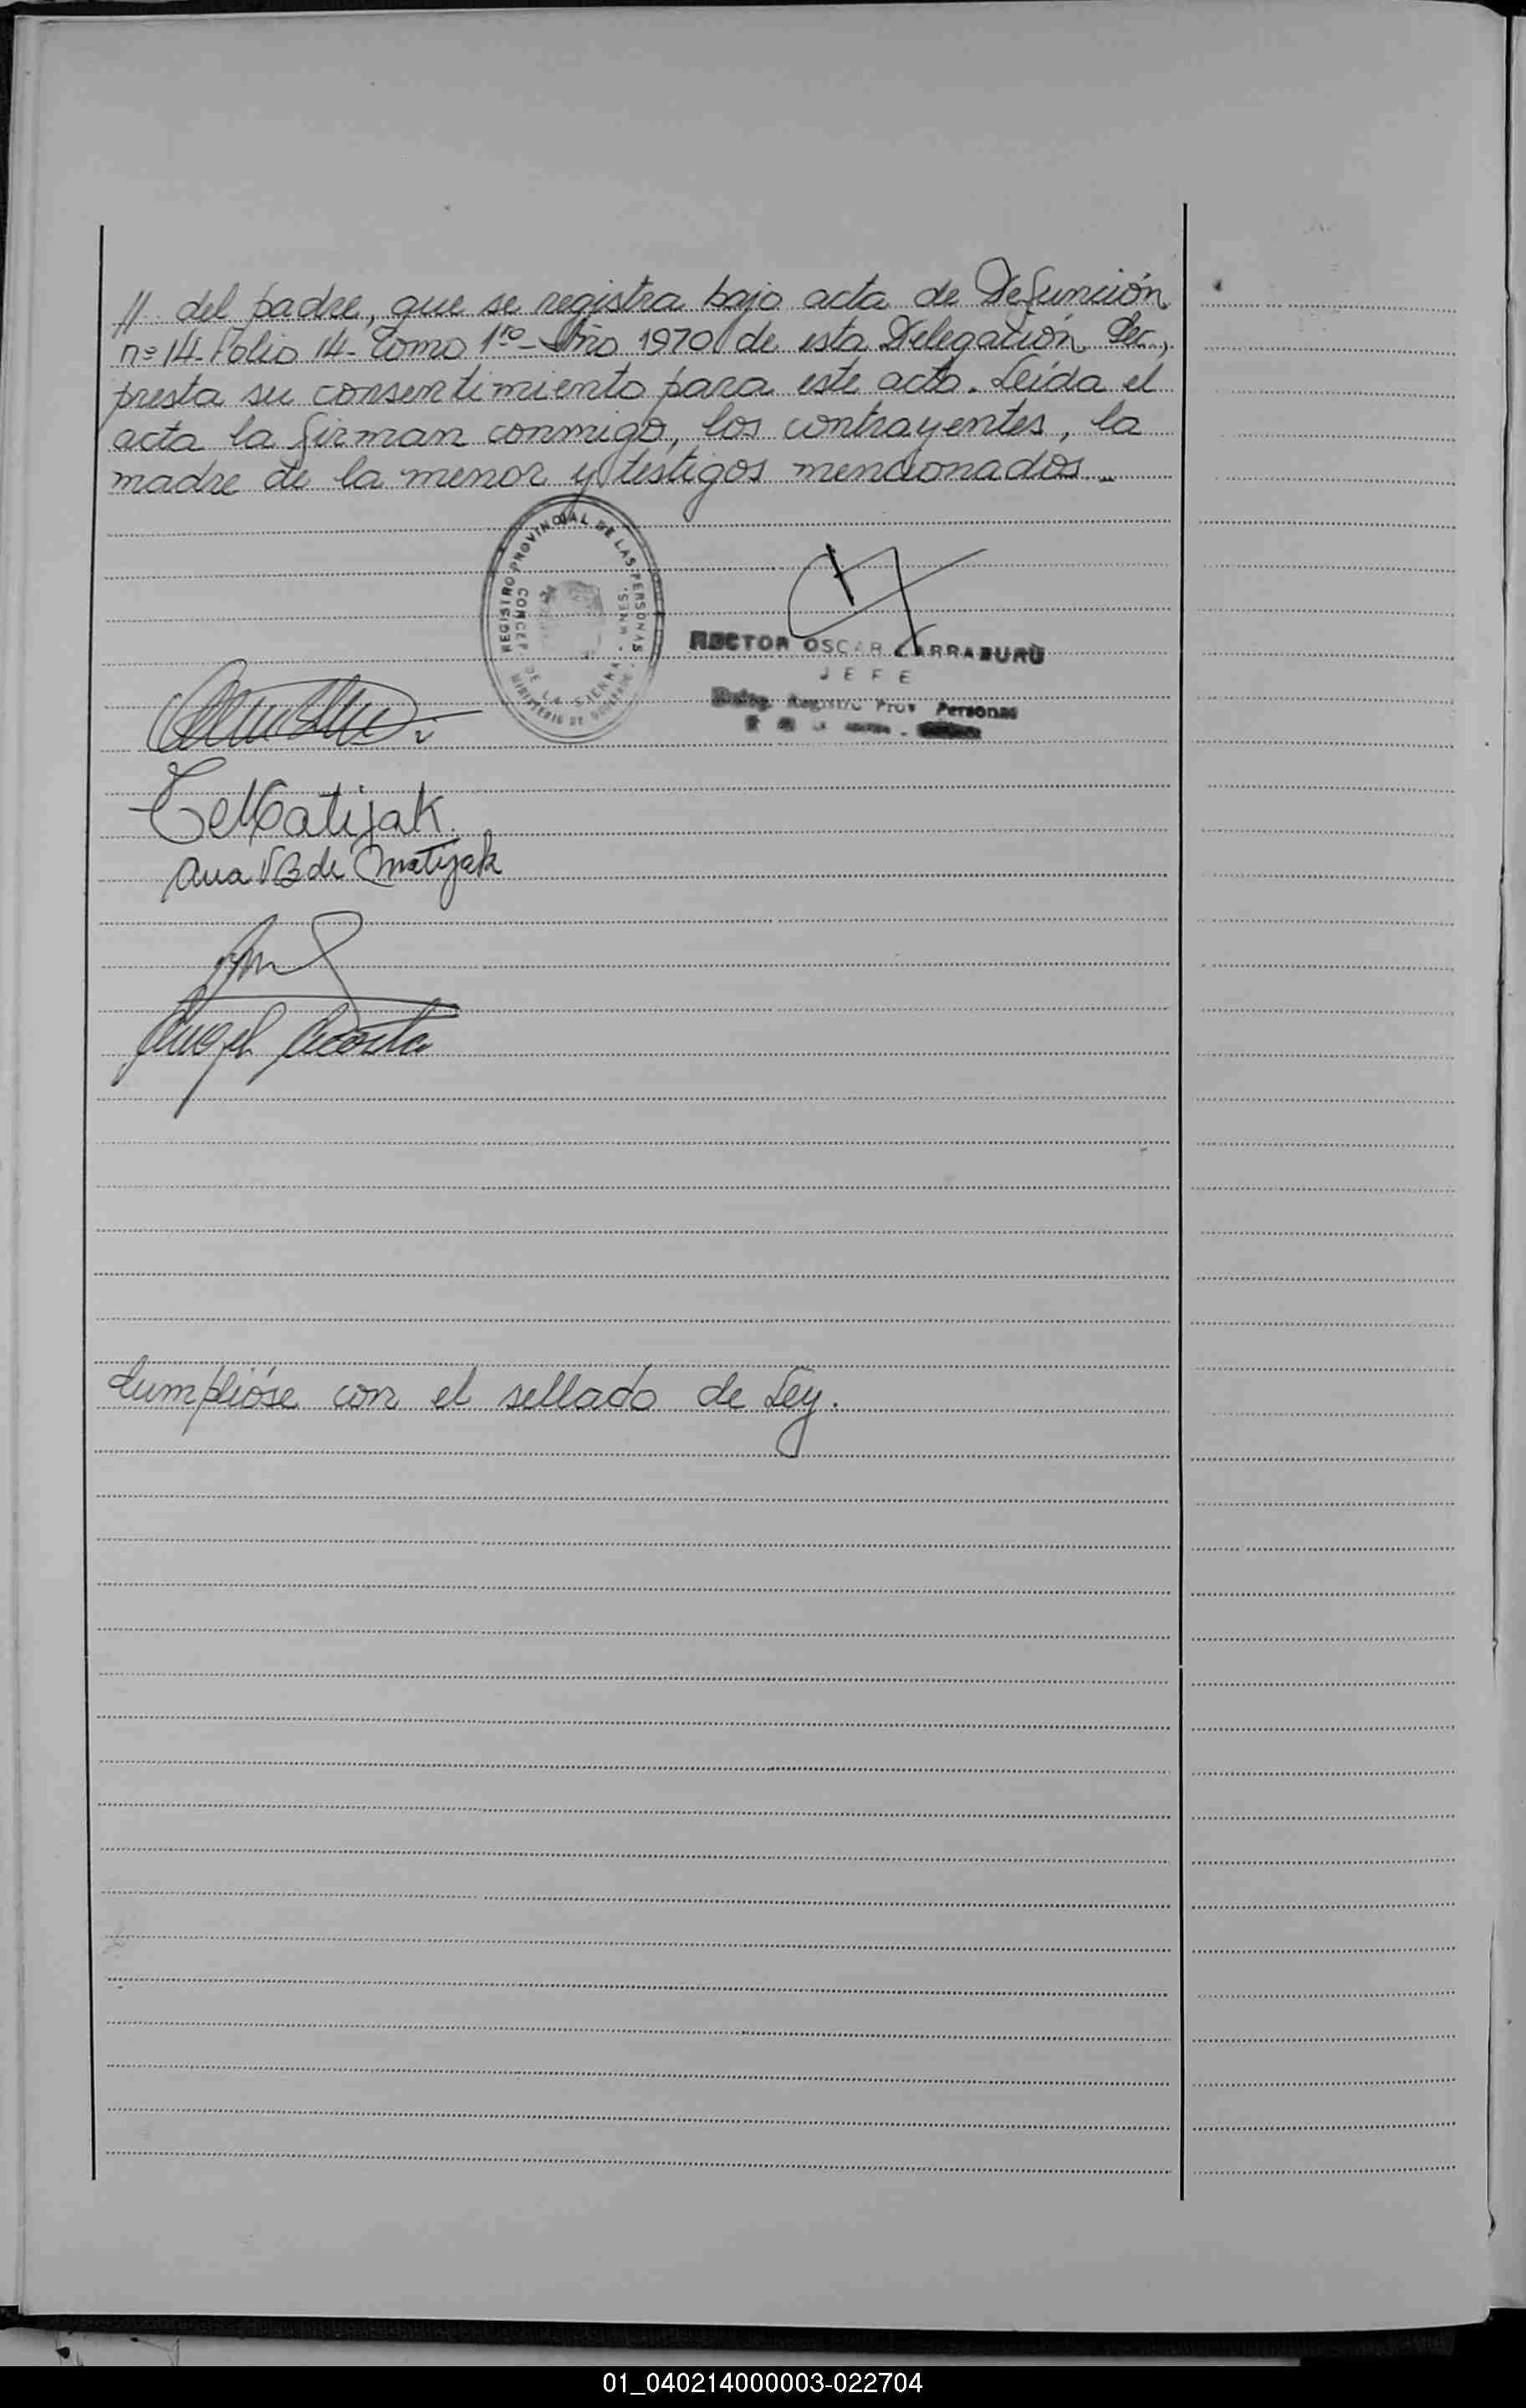 // del padre, que se registra bajo acta de Defunción
nº 14-Folio 14-Tomo 1ro-Año 1970 de esta Delegación Sec.,
presta su consentimiento para este acto. Leída el
acta la firman conmigo, los contrayentes, la
madre de la menor y testigos mencionados.-
REGISTRO PROVINCIAL DE LAS PERSONAS
DE LA SIERRA - MNES.
MINISTERIO DE
HECTOR OSCAR LARRABURU
JEFE
Registro Prov Personas
Matijak
Ana B de Matijak
Angel Acosta
Cumplióse con el sellado de Ley.
01_040214000003-022704